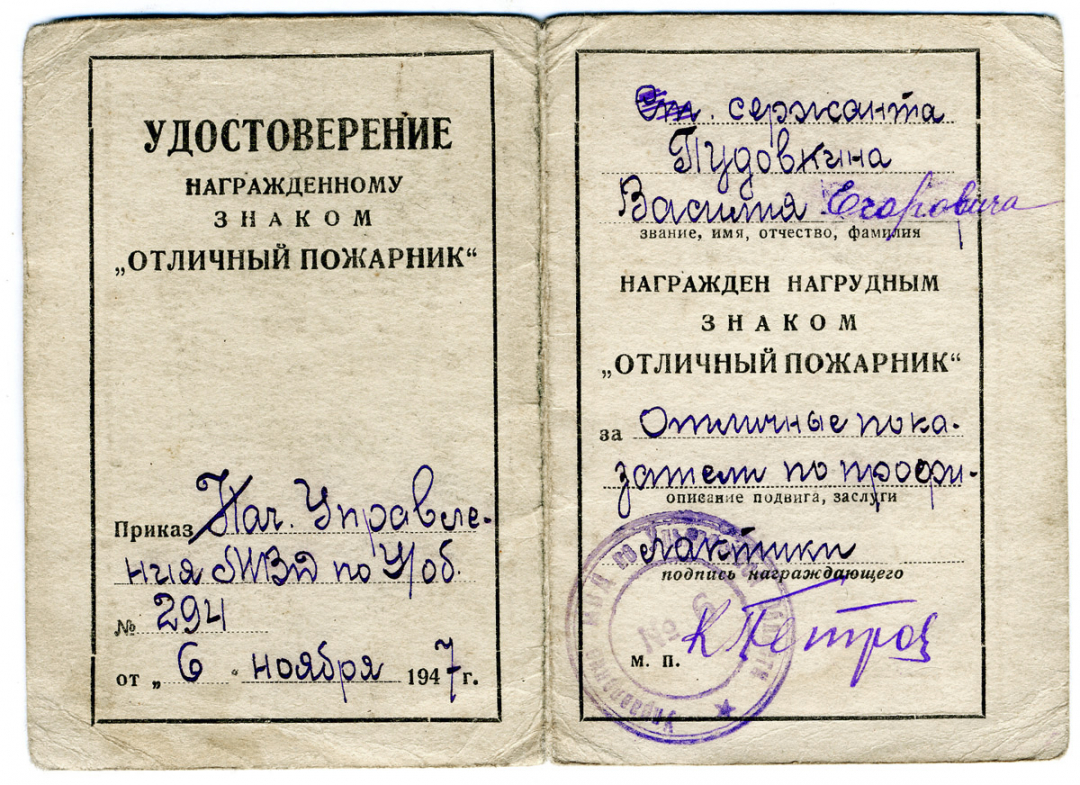 УДОСТОВЕРЕНИЕ
НАГРАЖДЕННОМУ
ЗНАКОМ
„ОТЛИЧНЫЙ ПОЖАРНИК“
Приказ Нач. Управле-
ния МВД по У/об.
№ 294
от „ 6 " ноября 1947 г.
Ст. сержанта
Пудовкина
Василия Егоровича
звание, имя, отчество, фамилия
НАГРАЖДЕН НАГРУДНЫМ
ЗНАКОМ
„ОТЛИЧНЫЙ ПОЖАРНИК“
за Отличные пока-
затели по профи-
описание подвига, заслуги
лактики
подпись награждающего
К Петров
м. п.
Управление МВД по
№ 3